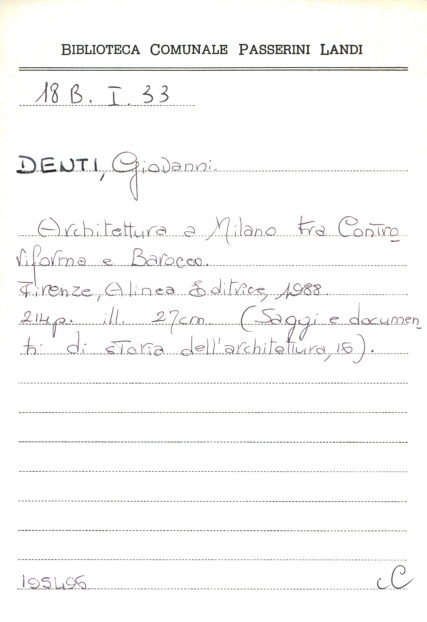 BIBLIOTECA COMUNALE PASSERINI LANDI
18 B. I. 33
DENTI, Giovanni.
Architettura a Milano tra Contro
riforma e Barocco.
Firenze, Alinea Editrice, 1988
214p. ill. 27cm (Saggi e documen
ti di storia dell'architettura, 15).
195496
cC